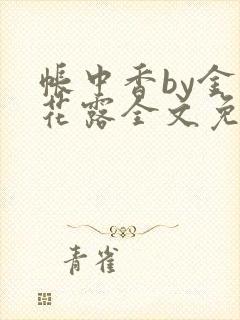 帐中香by金
花露全文免
青雀